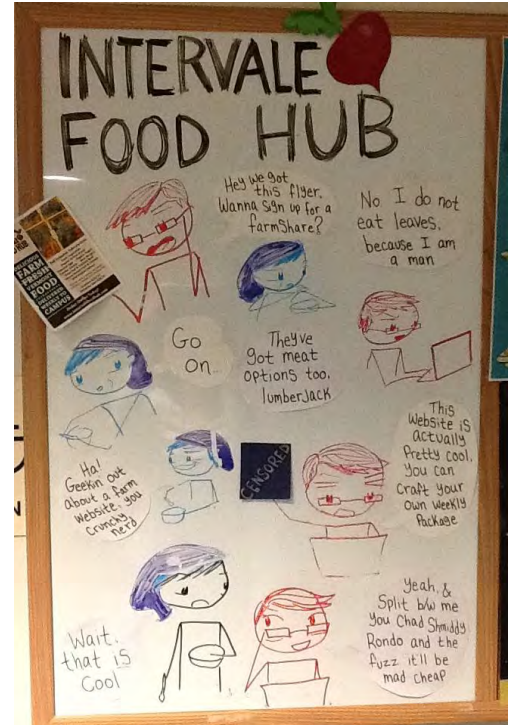 INTERVALE
FOOD HUB
DELICIOUS
FARM
FRESH
VERMONT
FOOD
DELIVERED
WEEKLY TO
CAMPUS
Hey we got
this flyer.
Wanna sign up for a
farmshare?
No I do not
eat leaves,
because I am
a man
Go
On...
Theyve
got meat
options too,
lumberjack
This
Website is
actually
Pretty cool,
You can
Craft Your
own weekly
Package
CENSORED
Ha!
Geekin out
about a farm
website, you
crunchy
nerd
Wait,
that is
Cool
Yeah, &
Split b/w me
You Chad Shmiddy
Rondo and the
fuzz it'll be
mad cheap